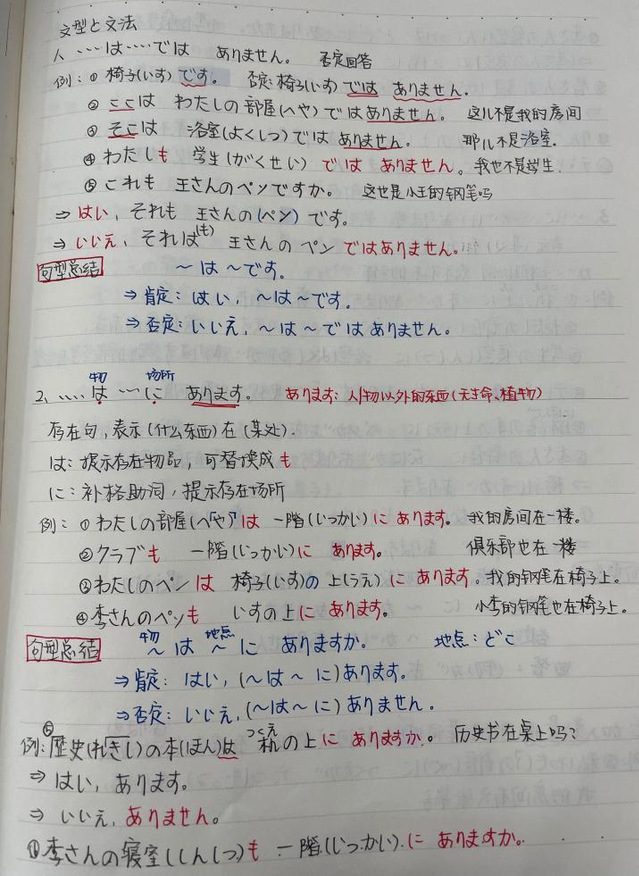 文型と文法
1. ……は……では ありません。 否定回答
例：① 椅子(いす)です。 否定:椅子(いす)では ありません.
② ここは わたしの部屋(へや)ではありません。 这儿不是我的房间
③ そこは 浴室(よくしつ)ではありません。 那儿不是浴室.
④ わたしも 学生(がくせい)では ありません。我也不是学生.
⑤ これも 王さんのペンですか。 这也是小王的钢笔吗
⇒ はい、それも 王さんの(ペン)です。
⇒ いいえ、それは(も) 王さんの ペンではありません。
句型总结 〜は〜です。
⇒ 肯定：はい,〜は〜です。
⇒ 否定：いいえ、〜は〜ではありません。
物 场所
2、……は……に あります。 あります:人/物以外的东西(无生命、植物)
存在句,表示(什么东西)在(某处).
は：提示存在物品,可替换成も
に：补格助词,提示存在场所
例：① わたしの部屋(へや)は 一階(じっかい)に あります。 我的房间在一楼。
② クラブも 一階(じっかい)に あります。 俱乐部也在一楼
③ わたしのペンは 椅子(いす)の上(うえ)に あります。我的钢笔在椅子上。
④ 李さんのペンも いすの上に あります。 小李的钢笔也在椅子上。
物 地点
句型总结 〜は〜に ありますか。 地点：どこ
⇒肯定：はい,(〜は〜に)あります。
⇒否定：いいえ,(〜は〜に)ありません。
例:⑥歴史(れきし)の本(ほん)は 机つくえの上に ありますか。 历史书在桌上吗?
⇒ はい、あります。
⇒ いいえ,ありません。
⑦李さんの寝室(しんしつ)も 一階(じっかい).に ありますか。